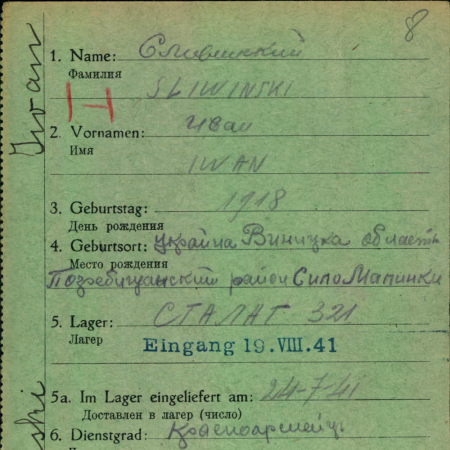 8
Iwan
1. Name: Сливинский
Фамилия
SLIWINSKI
H
2. Vornamen: Иван
Имя
IWAN
3. Geburtstag: 1918
День рождения
4. Geburtsort: Украйна Виницка область
Место рождения
район Сило
5. Lager: СТАЛАГ 321
Лагер
Eingang 19.VIII.41
5a. Im Lager eingeliefert am: 24-7-41
Доставлен в лагер (число)
ski
6. Dienstgrad: Красноармейць